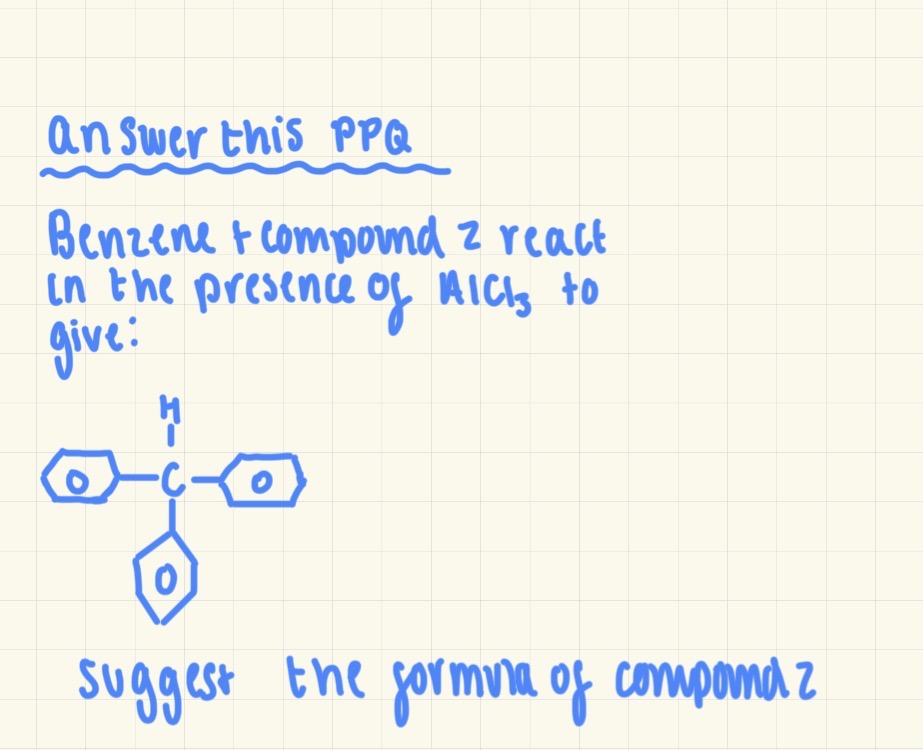 answer this PPQ
Benzene + compound z react
in the presence of AlCl₃ to
give:
H
C
suggest the formula of compound z